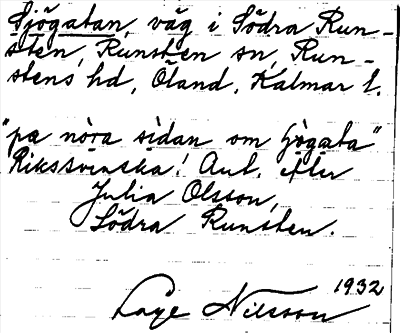 Sjögatan, väg i Södra Run-
sten, Runsten sn, Run-
stens hd, Öland, Kalmar l.
"pa nòra sìdan om sjògata"
Rikssvenska! Ant. efter
Julia Olsson,
Södra Runsten.
1932
Nilsson